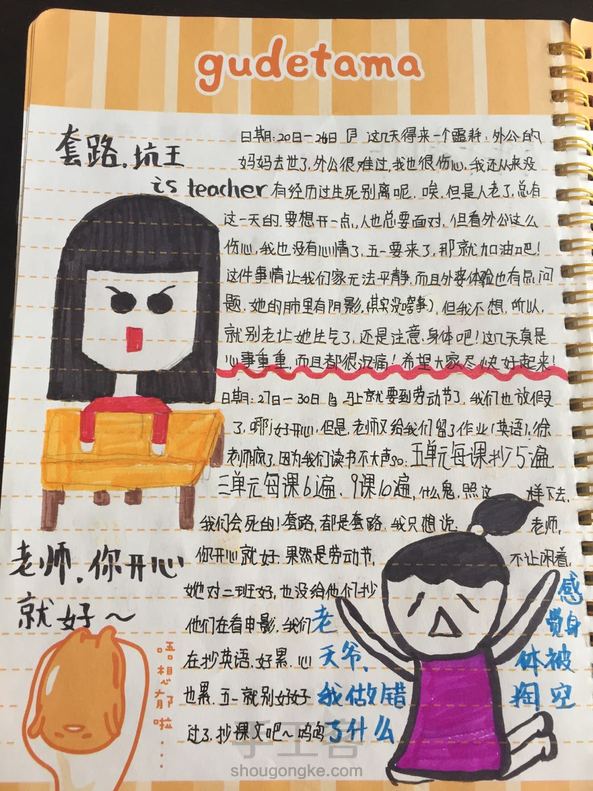 gudetama
套路.坑王
is teacher
日期:20日—26日 这几天得来一个噩耗,外公的
妈妈去世了,外公很难过,我也很伤心,我还从来没
有经历过生死别离呢。唉,但是人老了,总有
这一天的,要想开一点,人也总要面对,但看外公这么
伤心,我也没有心情了,五一要来了,那就加油吧!
这件事情让我们家无法平静,而且外婆体检也有点问
题,她的肺里有阴影,(其实没啥事),但我不想,所以,
就别老让她生气了,还是注意身体吧!这几天真是
心事重重,而且都很沉痛!希望大家尽快好起来!
日期:27日—30日 马上就要到劳动节了,我们也放假
了,哪好开心,但是,老师又给我们留了作业(英语),徐
老师疯了,因为我们读书不大声so,五单元每课抄5遍,
三单元每课6遍,9课10遍,什么鬼,照这样下去,
我们会死的!套路,都是套路,我只想说:老师,
你开心就好,果然是劳动节,不让闲着,
她对二班好,也没给他们抄
他们在看电影,我们
在抄英语,好累,心
也累,五一就别好好
过了,抄课文吧~呜呜
老师,你开心
就好~
唔想郁啦……
老天爷,我做错了什么
感觉身体被掏空
手工客
shougongke.com